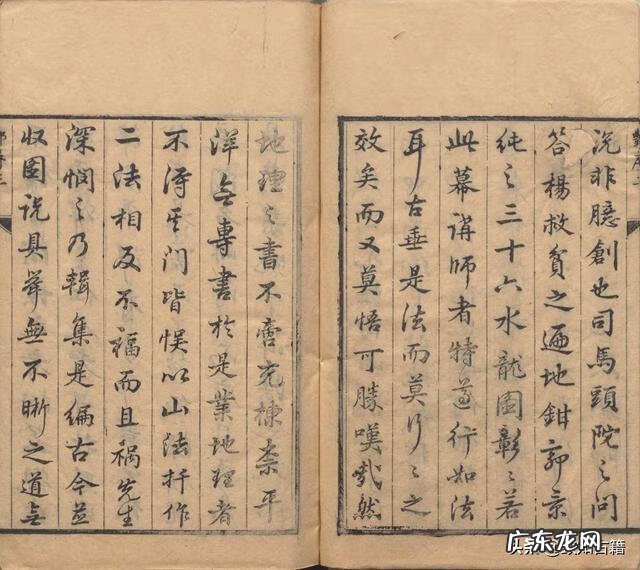 説非臆創也司馬頭院之問
答楊救貧之遍地鉗郭景
純之三十六水龍圖彰〻若
此幕講師者特遵行如法
耳古垂是法而莫行〻之
效矣而又莫悟可勝嘆哉然
地理之書不啻充棟柰平
洋無專書於是業地理者
不得其門皆悮以山法扦作
二法相反不福而且禍先生
深憫之乃輯集是編古今並
収圖説具舉無不晰之道無
广东龙网
古籍